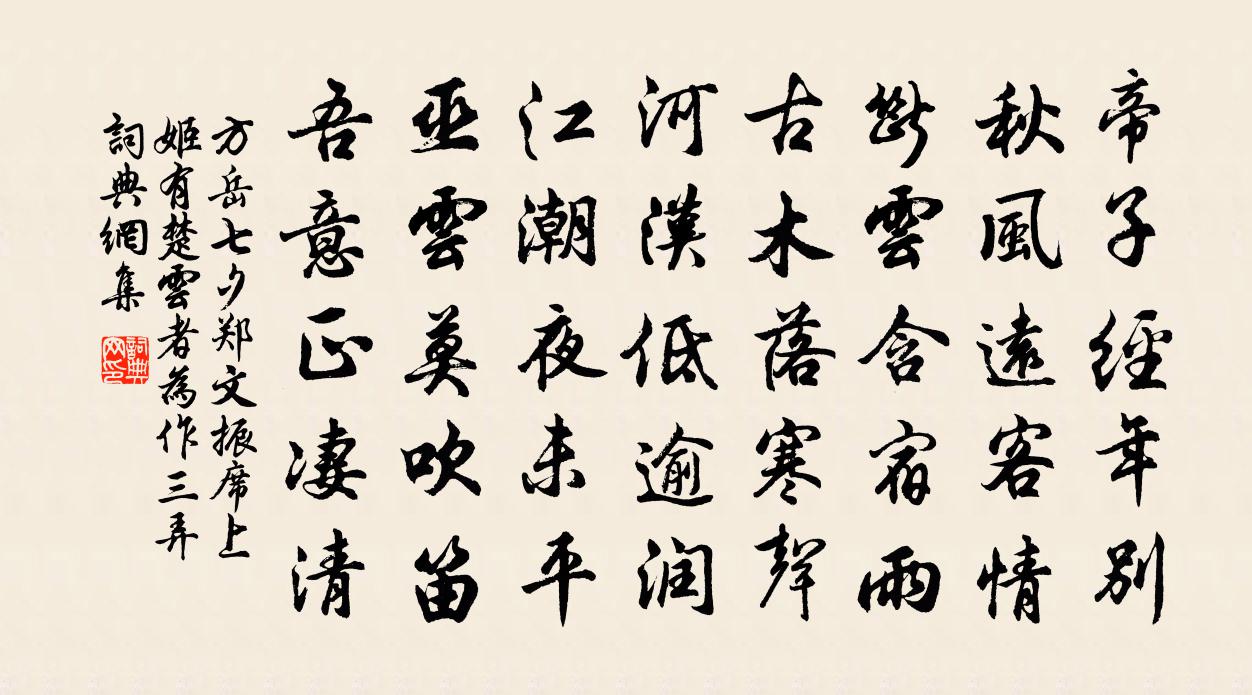 帝子經年別
秋風遠客情
斷雲含宿雨
古木落寒聲
河漢低逾润
江潮夜未平
巫雲莫吹笛
吾意正凄清
方岳七夕郑文振席上
姬有楚雲者為作三弄
詞典網集
詞典网印